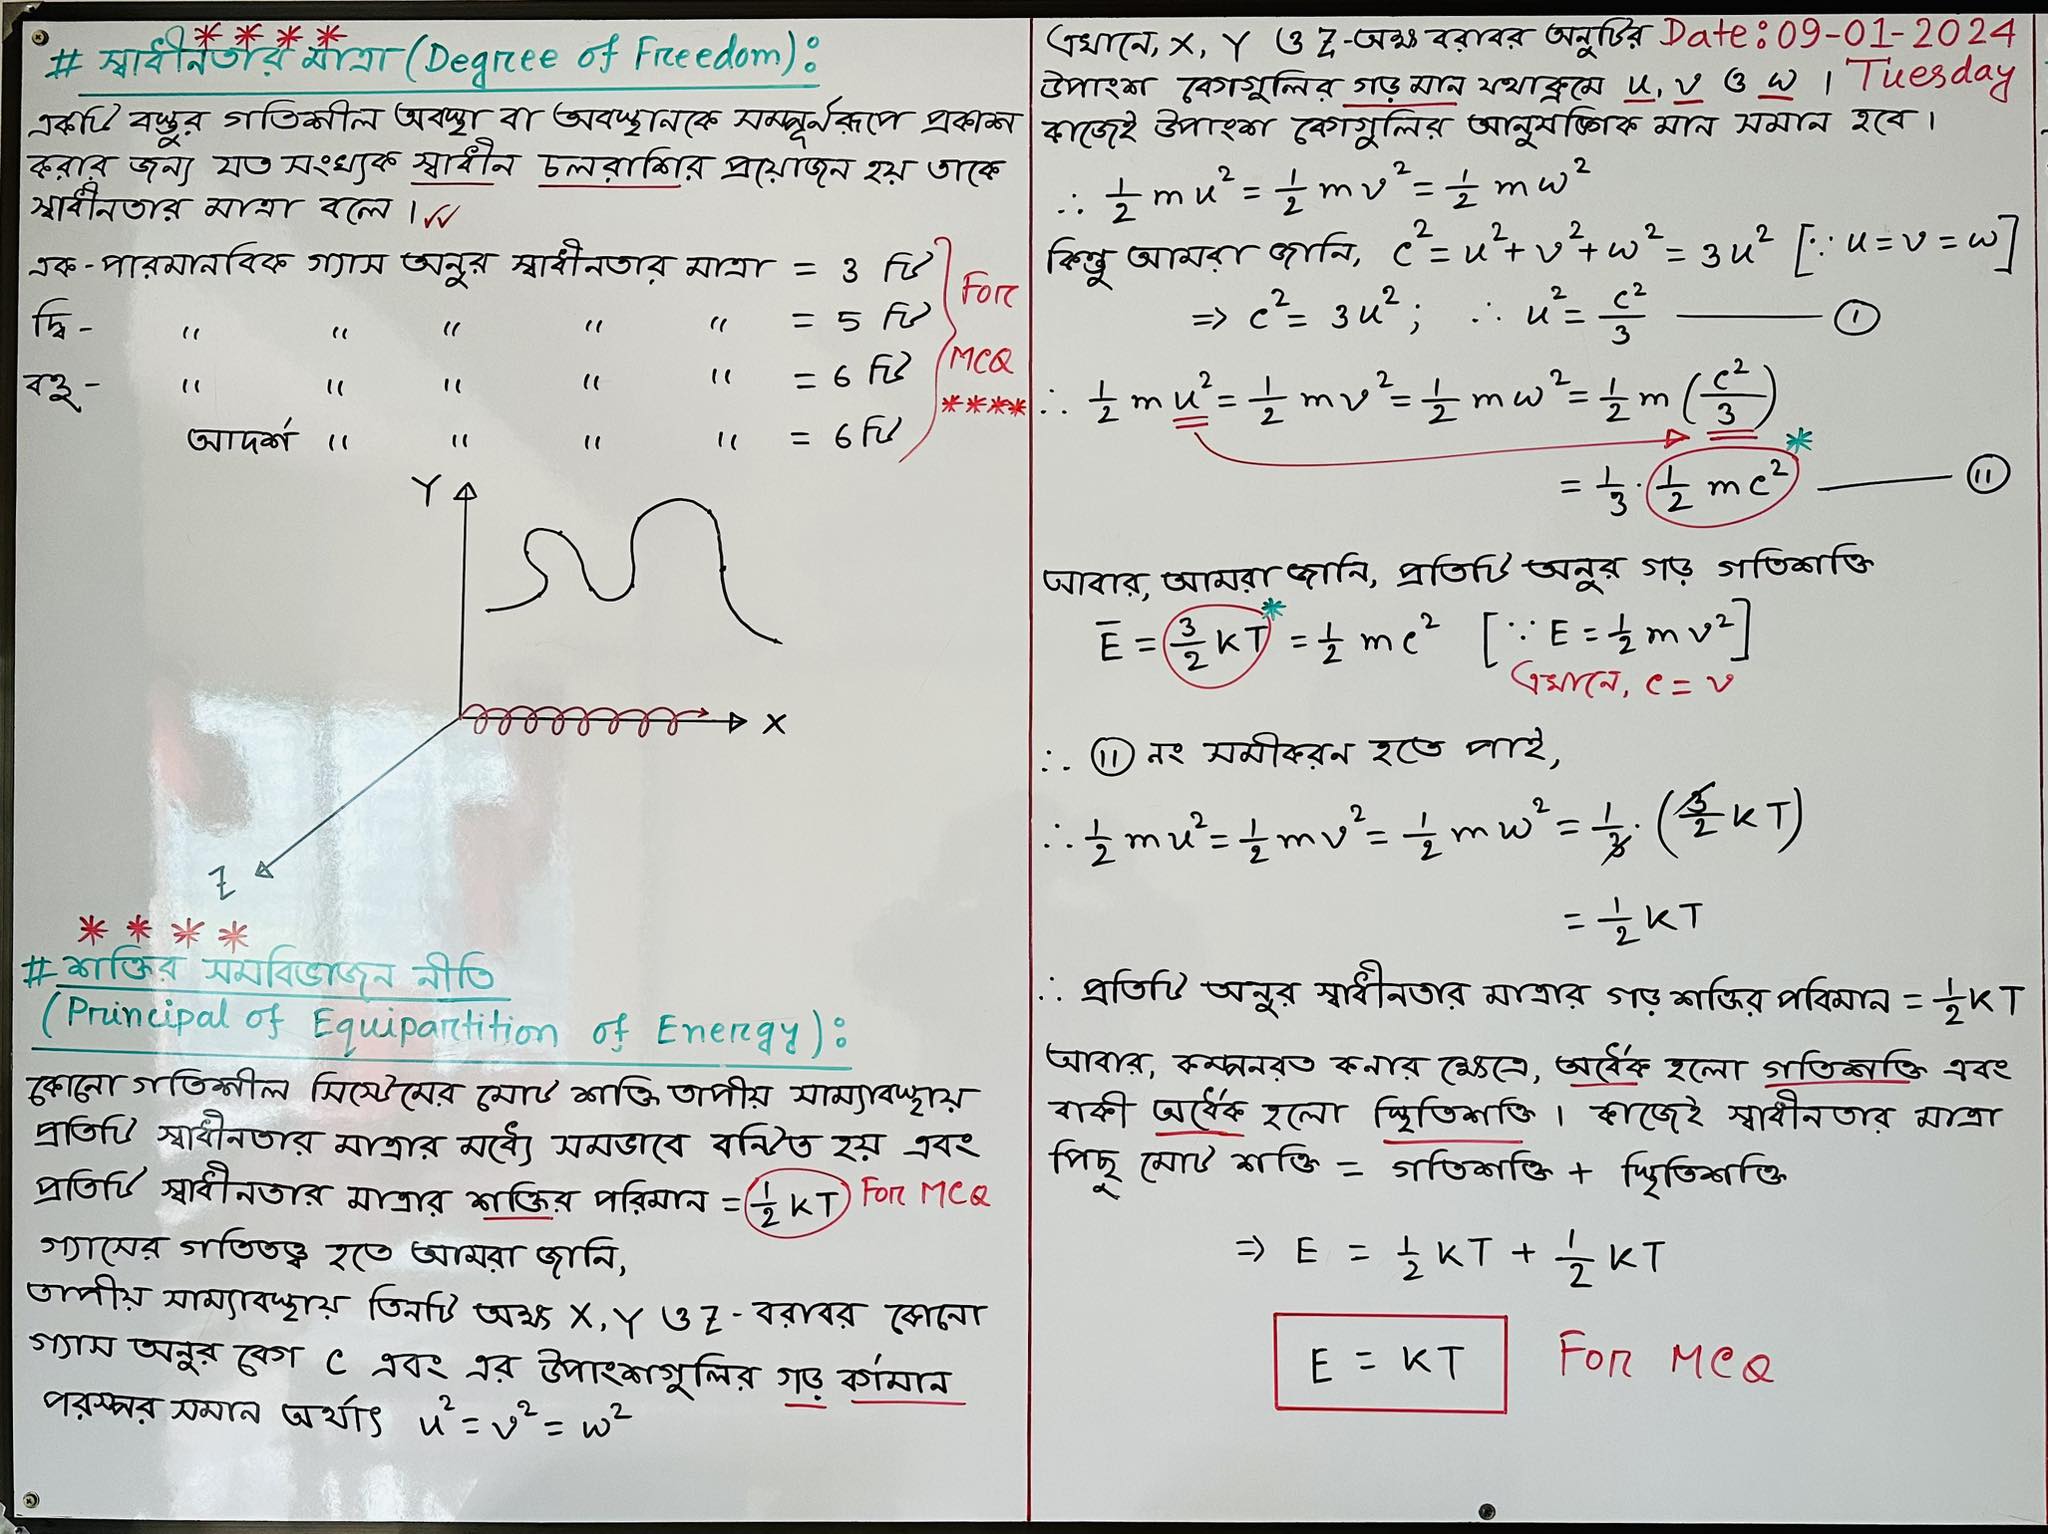 # স্বাধীনতার মাত্রা (Degree of Freedom):
একটি বস্তুর গতিশীল অবস্থা বা অবস্থানকে সম্পূর্নরূপে প্রকাশ
করার জন্য যত সংখ্যক স্বাধীন চলরাশির প্রয়োজন হয় তাকে
স্বাধীনতার মাত্রা বলে।
এক-পারমানবিক গ্যাস অনুর স্বাধীনতার মাত্রা = 3 টি
দ্বি- " " " " " = 5 টি
বহু- " " " " " = 6 টি
আদর্শ " " " " = 6 টি
For
MCQ
****
Y
X
Z
****
# শক্তির সমবিভাজন নীতি
(Principal of Equipartition of Energy):
কোনো গতিশীল সিস্টেমের মোট শক্তি তাপীয় সাম্যাবস্থায়
প্রতিটি স্বাধীনতার মাত্রার মধ্যে সমভাবে বন্টিত হয় এবং
প্রতিটি স্বাধীনতার মাত্রার শক্তির পরিমান = 1/2 KT For MCQ
গ্যাসের গতিতত্ত্ব হতে আমরা জানি,
তাপীয় সাম্যাবস্থায় তিনটি অক্ষ X, Y ও Z- বরাবর কোনো
গ্যাস অনুর বেগ c এবং এর উপাংশগুলির গড় বর্গমান
পরস্পর সমান অর্থাৎ u² = v² = w²
এখানে, X, Y ও Z-অক্ষ বরাবর অনুটির Date: 09-01-2024
উপাংশ বেগগুলির গড় মান যথাক্রমে u, v ও w । Tuesday
কাজেই উপাংশ বেগগুলির আনুষঙ্গিক মান সমান হবে।
∴ 1/2 mu² = 1/2 mv² = 1/2 mw²
কিন্তু আমরা জানি, c² = u² + v² + w² = 3u² [∵ u = v = w]
=> c² = 3u²; ∴ u² = c²/3 —— (I)
∴ 1/2 mu² = 1/2 mv² = 1/2 mw² = 1/2 m (c²/3)
= 1/3 · 1/2 mc² —— (II)
আবার, আমরা জানি, প্রতিটি অনুর গড় গতিশক্তি
Ē = 3/2 KT = 1/2 mc² [∵ E = 1/2 mv²]
এখানে, c = v
∴ (II) নং সমীকরন হতে পাই,
∴ 1/2 mu² = 1/2 mv² = 1/2 mw² = 1/3 · (3/2 KT)
= 1/2 KT
∴ প্রতিটি অনুর স্বাধীনতার মাত্রার গড় শক্তির পরিমান = 1/2 KT
আবার, কম্পনরত কনার ক্ষেত্রে, অর্ধেক হলো গতিশক্তি এবং
বাকী অর্ধেক হলো স্থিতিশক্তি। কাজেই স্বাধীনতার মাত্রা
পিছু মোট শক্তি = গতিশক্তি + স্থিতিশক্তি
=> E = 1/2 KT + 1/2 KT
E = KT For MCQ